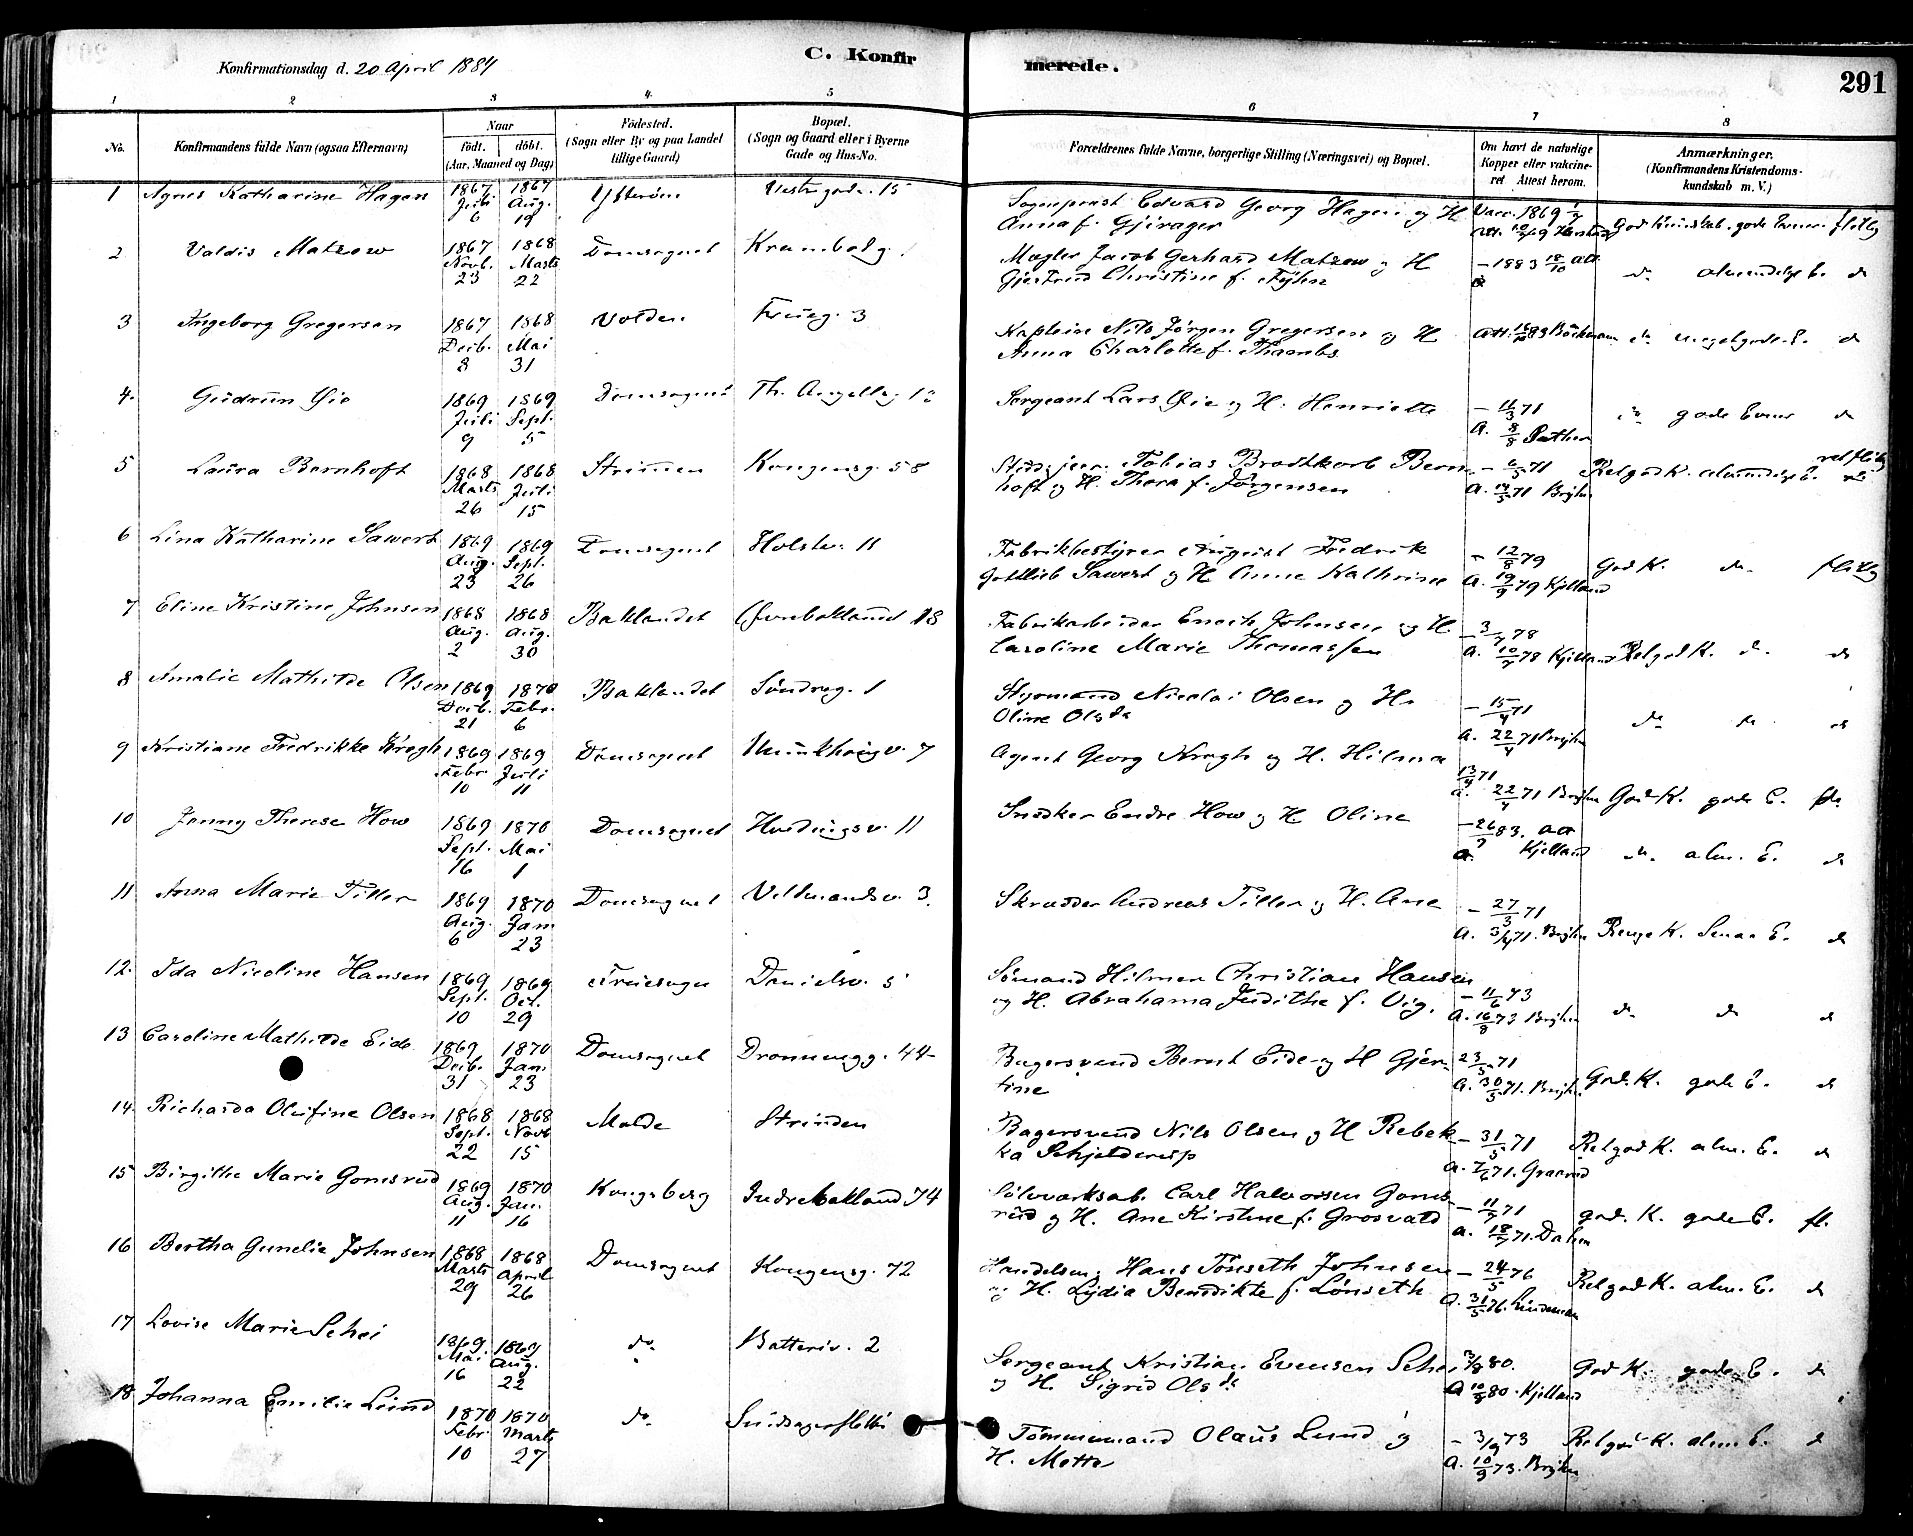 Konfirmationsdag d. 20 April 1884
C. Konfir
merede.
291
1 2 3 4. 5 6 7 8
No.
Konfirmandens fulde Navn (ogsaa Efternavn)
Naar
født. døbt.
(Aar, Maaned og Dag)
Fødested.
(Sogn eller By og paa Landet
tillige Gaard)
Bopæl.
(Sogn og Gaard eller i Byerne
Gade og Hus-No.
Forældrenes fulde Navne, borgerlige Stilling (Næringsvei) og Bopæl.
Om havt de naturlige
Kopper eller vakcine-
ret Attest herom.
Anmærkninger.
(Konfirmandens Kristendoms-
kundskab m. V.)
1 Agnes Katharine Hagen 1867 1867 Ytterøen Vestregade. 15 Sogneprest Edvard Georg Hagen og H. Vacc. 1869
Juli Aug. Anna f. Gjörager God Kundskab. gode Evner. flittig
6 19
2 Valdis Matzow 1867 1868 Domsognet Krambodg. Mægler Jacob Gerhard Matzow og H – 1883 18/10 att
Novb. Marts Gjertrud Christine f. Fyhn do almindelige E. do
23 22
3 Ingeborg Gregersen 1867 1868 Volden Frueg. 3 Kaptein Nils Jørgen Gregersen og H
Decb. Mai Anna Charlotte f. Thaambs do meget gode E. do
8 31
4. Gudrun Øie 1869 1869 Domsognet Th. Angellsg. Sergeant Lars Øie og H. Henriette – 11/3 71
Juli Sept. A. 8/8 do gode Evner do
9 5
5 Laura Bernhoft 1868 1868 Strinden Kongensg. 58 Tobias Brodtkorb Bern
Marts Juli hoft og H. Thora f. Jørgensen A. 14/5 71 Brÿhn Relgod K. almindelige E. retflittig
26 15
6 Lina Katharine Sawert 1869 1869 Domsognet Holstv. 11 Fabrikbestyrer August Fredrik – 12/8 79
Aug. Sept. Gottlieb Sawert og H Anne Kathrine A. 19/9 79 Kjelland God K. do flittig
23 26
7 Eline Kristine Johnsen 1868 1868 Baklandet Øvrebakland 18 Fabrikarbeider Enoch Johnsen og H.
Aug. Aug. Caroline Marie Thomassen A. 10/7 78 Kjelland Relgod K. do. do
2 30
8 Amalie Mathilde Olsen 1869 1870 Baklandet Søndreg. 1 Styrmand Nicolai Olsen og H. – 15/4 71
Decb. Febr. Oline Olsda A. 22/4 71 Brÿhn do do do
21 6
9 Kristiane Fredrikke Krogh 1869 1869 Domsognet Munkhaugv. 7 Agent Georg Krogh og H. Hilma 13/4 71
Febr Juli A. 22/4 71 Brÿhn God K. gode E. fl.
10 11
10 Jenny Therese How 1869 1870 Domsognet Hvedingsv. 11 Snedker Endre How og H Oline – 26/9 83. att
Sept. Mai Kjelland do. alm. E. do
16 1
11 Anna Marie Tiller 1869 1870 Domsognet Veltmandsv. 3. Skrædder Andreas Tiller og H. Ane – 27/3 71
Aug. Jan. A. 3/4 71. Brÿhn Ringe K. Smaa E. do
6 23
12. Ida Nicoline Hansen 1869 1869 Fruesogn Danielsv. 5 Sømand Hilmer Christian Hansen – 11/6 73
Sept. Oct. og H. Abrahama Judithe f. Vig. A. 16/8 73 Brÿhn do do do
10 29
13 Caroline Mathilde Eide 1869 1870 Domsognet Dronningg. 44 Bagersvend Bernt Eide og H Gjer- 23/5 71
Decb. Jan. tine A. 30/5 71. Brÿhn God. K. gode E. do
31 23
14. Richarda Olufine Olsen 1868 1868 Molde Strinden Bagersvend Nils Olsen og H Rebek – 31/5 71
Sept. Novb ka Schjelderup A. 7/6 71. Relgod K. alm. E. do
22 15
15 Birgithe Marie Gomsrud 1869 1870 Kongsberg Indrebakland 74 Sølvværksab. Carl Halvorsen Goms – 11/7 71
Aug. Jan. rud og H. Ane Kirstine f. Grosvald A. 18/7 71. Dahm god. K. gode E. fl.
11 16
16 Bertha Gunelie Johnsen 1868 1868 Domsognet Kongensg. 72 Handelsm. Hans Tönseth Johnsen – 24/5 76
Marts April og H. Lydia Bendikte f. Lönseth A. 31/5 76. Lindeman Relgod K. alm. E. do
29 26
17 Lovise Marie Schei 1869. 1869 do. Batteriv. 2 Sergeant Kristian Evensen Schei 3/8 80.
Mai Aug. og H. Sigrid Olsdt A 10/8 80. Kjelland God K. gode E. do
16 22
18 Johanna Emilie Lund 1870 1870 do. Tømmermand Olaus Lund og – 3/9 73
Febr Marts H. Mette A. 10/9 73. Brÿhn Relgod K. alm E. do
10 27